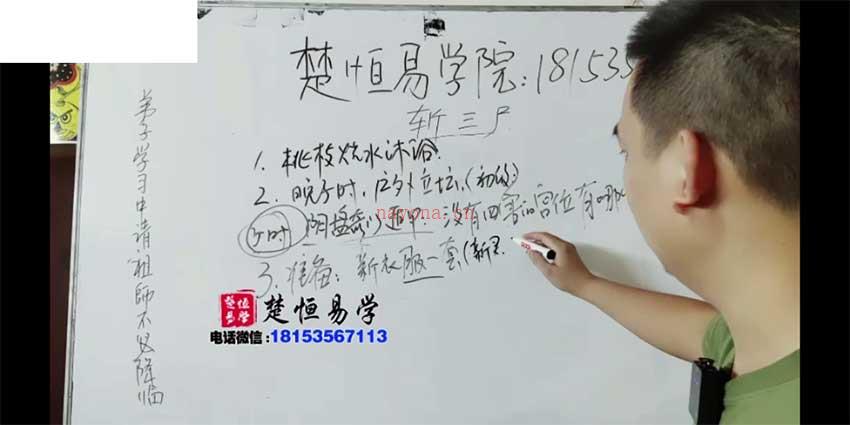 楚恒易学院:181535
斩三尸
1. 桃枝烧水沐浴.
2. 晚子时. 户外立坛.(初级)
子时 阴盘奇门遁甲. 没有四害的宫位有哪
3. 准备: 新衣服一套.(新
弟子学习申请.祖师不必降临
nayona.cn
楚恒易学 楚恒易学
电话微信:18153567113